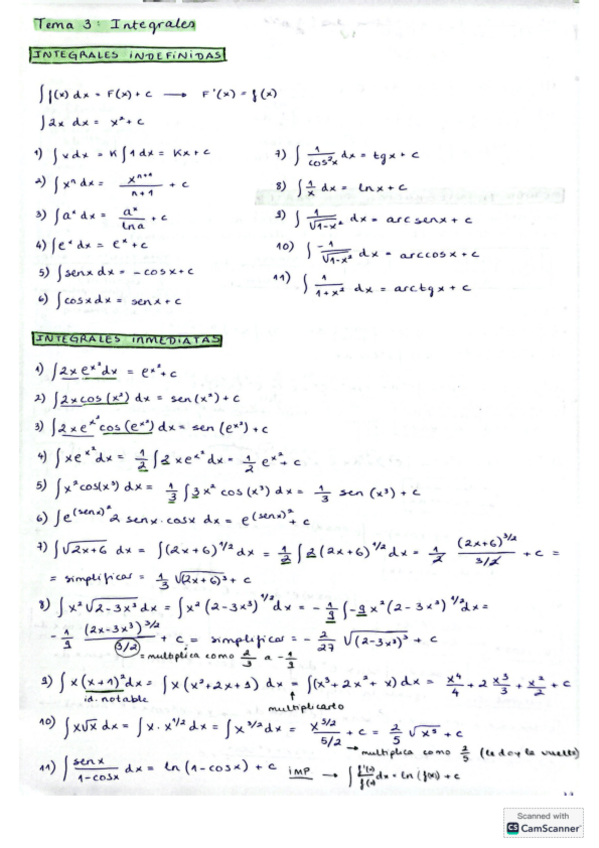 Tema 3: Integrales
INTEGRALES INDEFINIDAS
∫f(x) dx = F(x) + c ⟶ F'(x) = f(x)
∫2x dx = x² + c
1) ∫K dx = K∫1 dx = Kx + c
2) ∫xⁿ dx = xⁿ⁺¹/(n+1) + c
3) ∫aˣ dx = aˣ/lna + c
4) ∫eˣ dx = eˣ + c
5) ∫senx dx = -cosx + c
6) ∫cosx dx = senx + c
7) ∫ 1/cos²x dx = tgx + c
8) ∫ 1/x dx = lnx + c
9) ∫ 1/√(1-x²) dx = arcsenx + c
10) ∫ -1/√(1-x²) dx = arccosx + c
11) ∫ 1/(1+x²) dx = arctgx + c
INTEGRALES INMEDIATAS
1) ∫2x e^(x²) dx = e^(x²) + c
2) ∫2x cos(x²) dx = sen(x²) + c
3) ∫2x e^(x²) cos(e^(x²)) dx = sen(e^(x²)) + c
4) ∫x e^(x²) dx = 1/2 ∫2 x e^(x²) dx = 1/2 e^(x²) + c
5) ∫x² cos(x³) dx = 1/3 ∫3x² cos(x³) dx = 1/3 sen(x³) + c
6) ∫e^(senx)² 2 senx · cosx dx = e^(senx)² + c
7) ∫√(2x+6) dx = ∫(2x+6)^(1/2) dx = 1/2 ∫2(2x+6)^(1/2) dx = 1/2 (2x+6)^(3/2)/(3/2) + c =
= simplificar = 1/3 √(2x+6)³ + c
8) ∫x²√(2-3x³) dx = ∫x²(2-3x³)^(1/2) dx = -1/9 ∫-9x²(2-3x³)^(1/2) dx =
-1/9 (2x-3x³)^(3/2)/(3/2) + c = simplificar = -2/27 √(2-3x³)³ + c
= multiplica como 2/3 a -1/9
9) ∫x(x+1)² dx = ∫x(x²+2x+1) dx = ∫(x³+2x²+x) dx = x⁴/4 + 2 x³/3 + x²/2 + c
id. notable
multiplicarlo
10) ∫x√x dx = ∫x · x^(1/2) dx = ∫x^(3/2) dx = x^(5/2)/(5/2) + c = 2/5 √x⁵ + c
multiplica como 2/5 (le doy la vuelta)
11) ∫ senx/(1-cosx) dx = ln(1-cosx) + c IMP ⟶ ∫ f'(x)/f(x) dx = ln(f(x)) + c
Scanned with
CS CamScanner